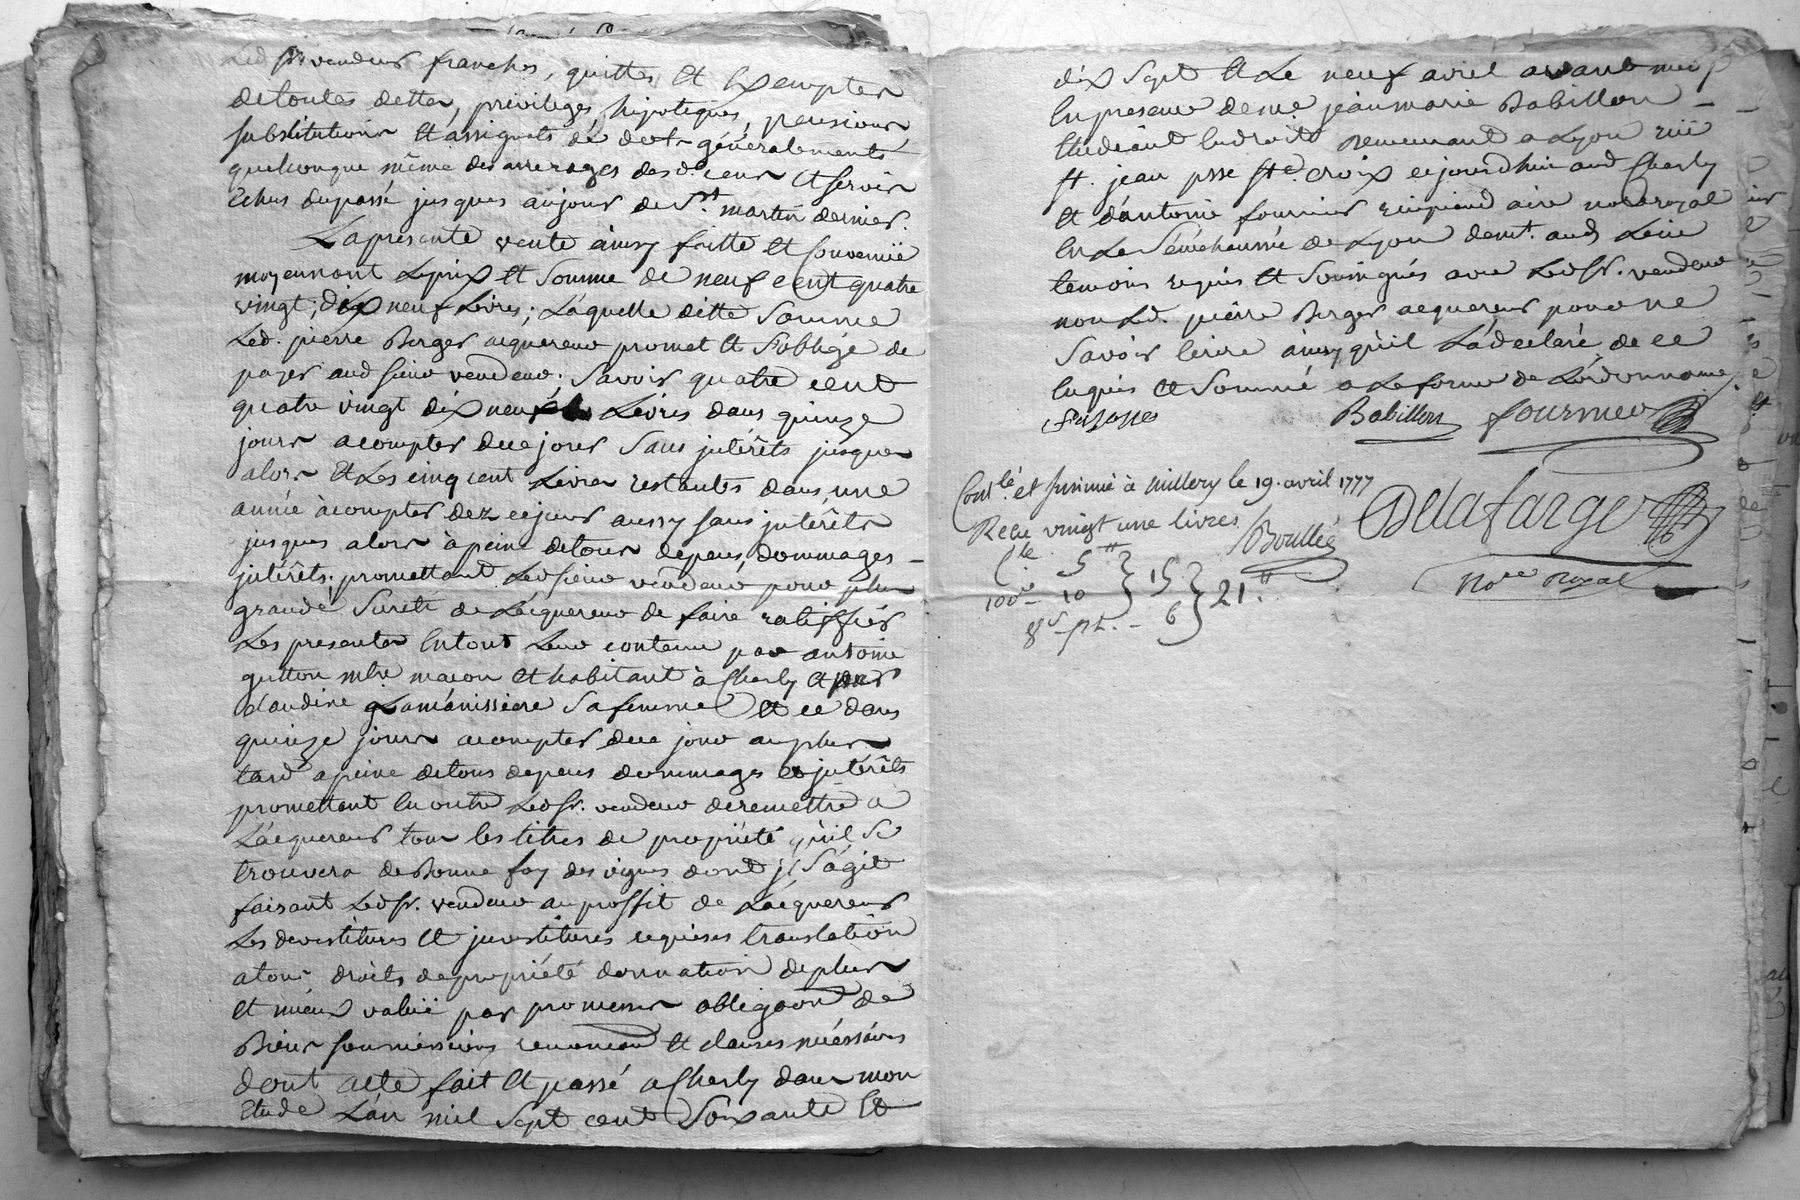 Led Sr. vendeur franches, quittes Et Exemptes
detoutes dettes, privileges, hipoteques, pensions
substitutions Et assignets de dot généralements
quelconque même des arrerages desd cens Et servis
Echus dupassé jusques aujour de St. martin dernier.
Laprésente vente ainsy faitte Et Convenüe
moyennant Leprix Et Somme de neuf cent quatre
vingt; dix neuf Livres; Láquelle ditte Somme
Led. pierre Berger acquereur promet Et S'oblige de
payer aud sieur vendeur; Savoir quatre cent
quatre vingt dix neuf Livres dans quinze
jours acompter dece jour Sans jntérêts jusques
alors Et Les cinq cent Livres restantes dans une
année àcompter dez cejour aussy sans jntérêts
jusques alors à peine detous depens, dommages
jntérêts. promettant Led sieur vendeur pour plus
grande Sureté de Lácquereur de faire ratiffier
Les presentes Entout Leur contenu par antoine
gutton mtre macon Et habitant à Charly Et par
claudine Lamánissiere Safemme Et ce dans
quinze jours acompter dece jour auplus
tard apeine detous depens dommages Et jntérêts
promettant En outre Led Sr. vendeur deremettre a
Lácquereur tous les titres de propriété qu'il Se
trouvera deBonne foy des vignes dont jl S'ágit
faisant Led Sr. vendeur auproffit de Lácquereur
Les devestitures Et jnvestitures requises translation
atous droits depropriété donnation deplus
Et mieux value par promesses obligaon de
Biens soumissions renonciaon Et clauses nécéssaires
dont acte fait Et passé a Charly dans mon
Etude Lán mil Sept cent Soixante Et
dix Sept Et Le neuf avril avant midy
En presence de me. jean marie Babillon
Etudiant Endroit demeurant a Lyon rüe
St. jean psse Ste. Croix cejourdhui aud Charly
Et dántoine fournier notroyal
En La Sénéchaussée de Lyon demt. aud Lieu
temoins requis Et Soussignés avec Led Sr. vendeur
non Led. pierre Berger acquereur pour ne
Savoir Ecrire ainsy qu'il Lá declaré de ce
Enquis Et Sommé a La forme de Lórdonnance
Babillon fournier
Conlé. et Insinué à Millery le 19. avril 1777
Delafarge
Recu vingt une livres
Boullée
Cle 5# } 15 } 21.#
100e - 10
8s. pt. - 6
Nore Royal